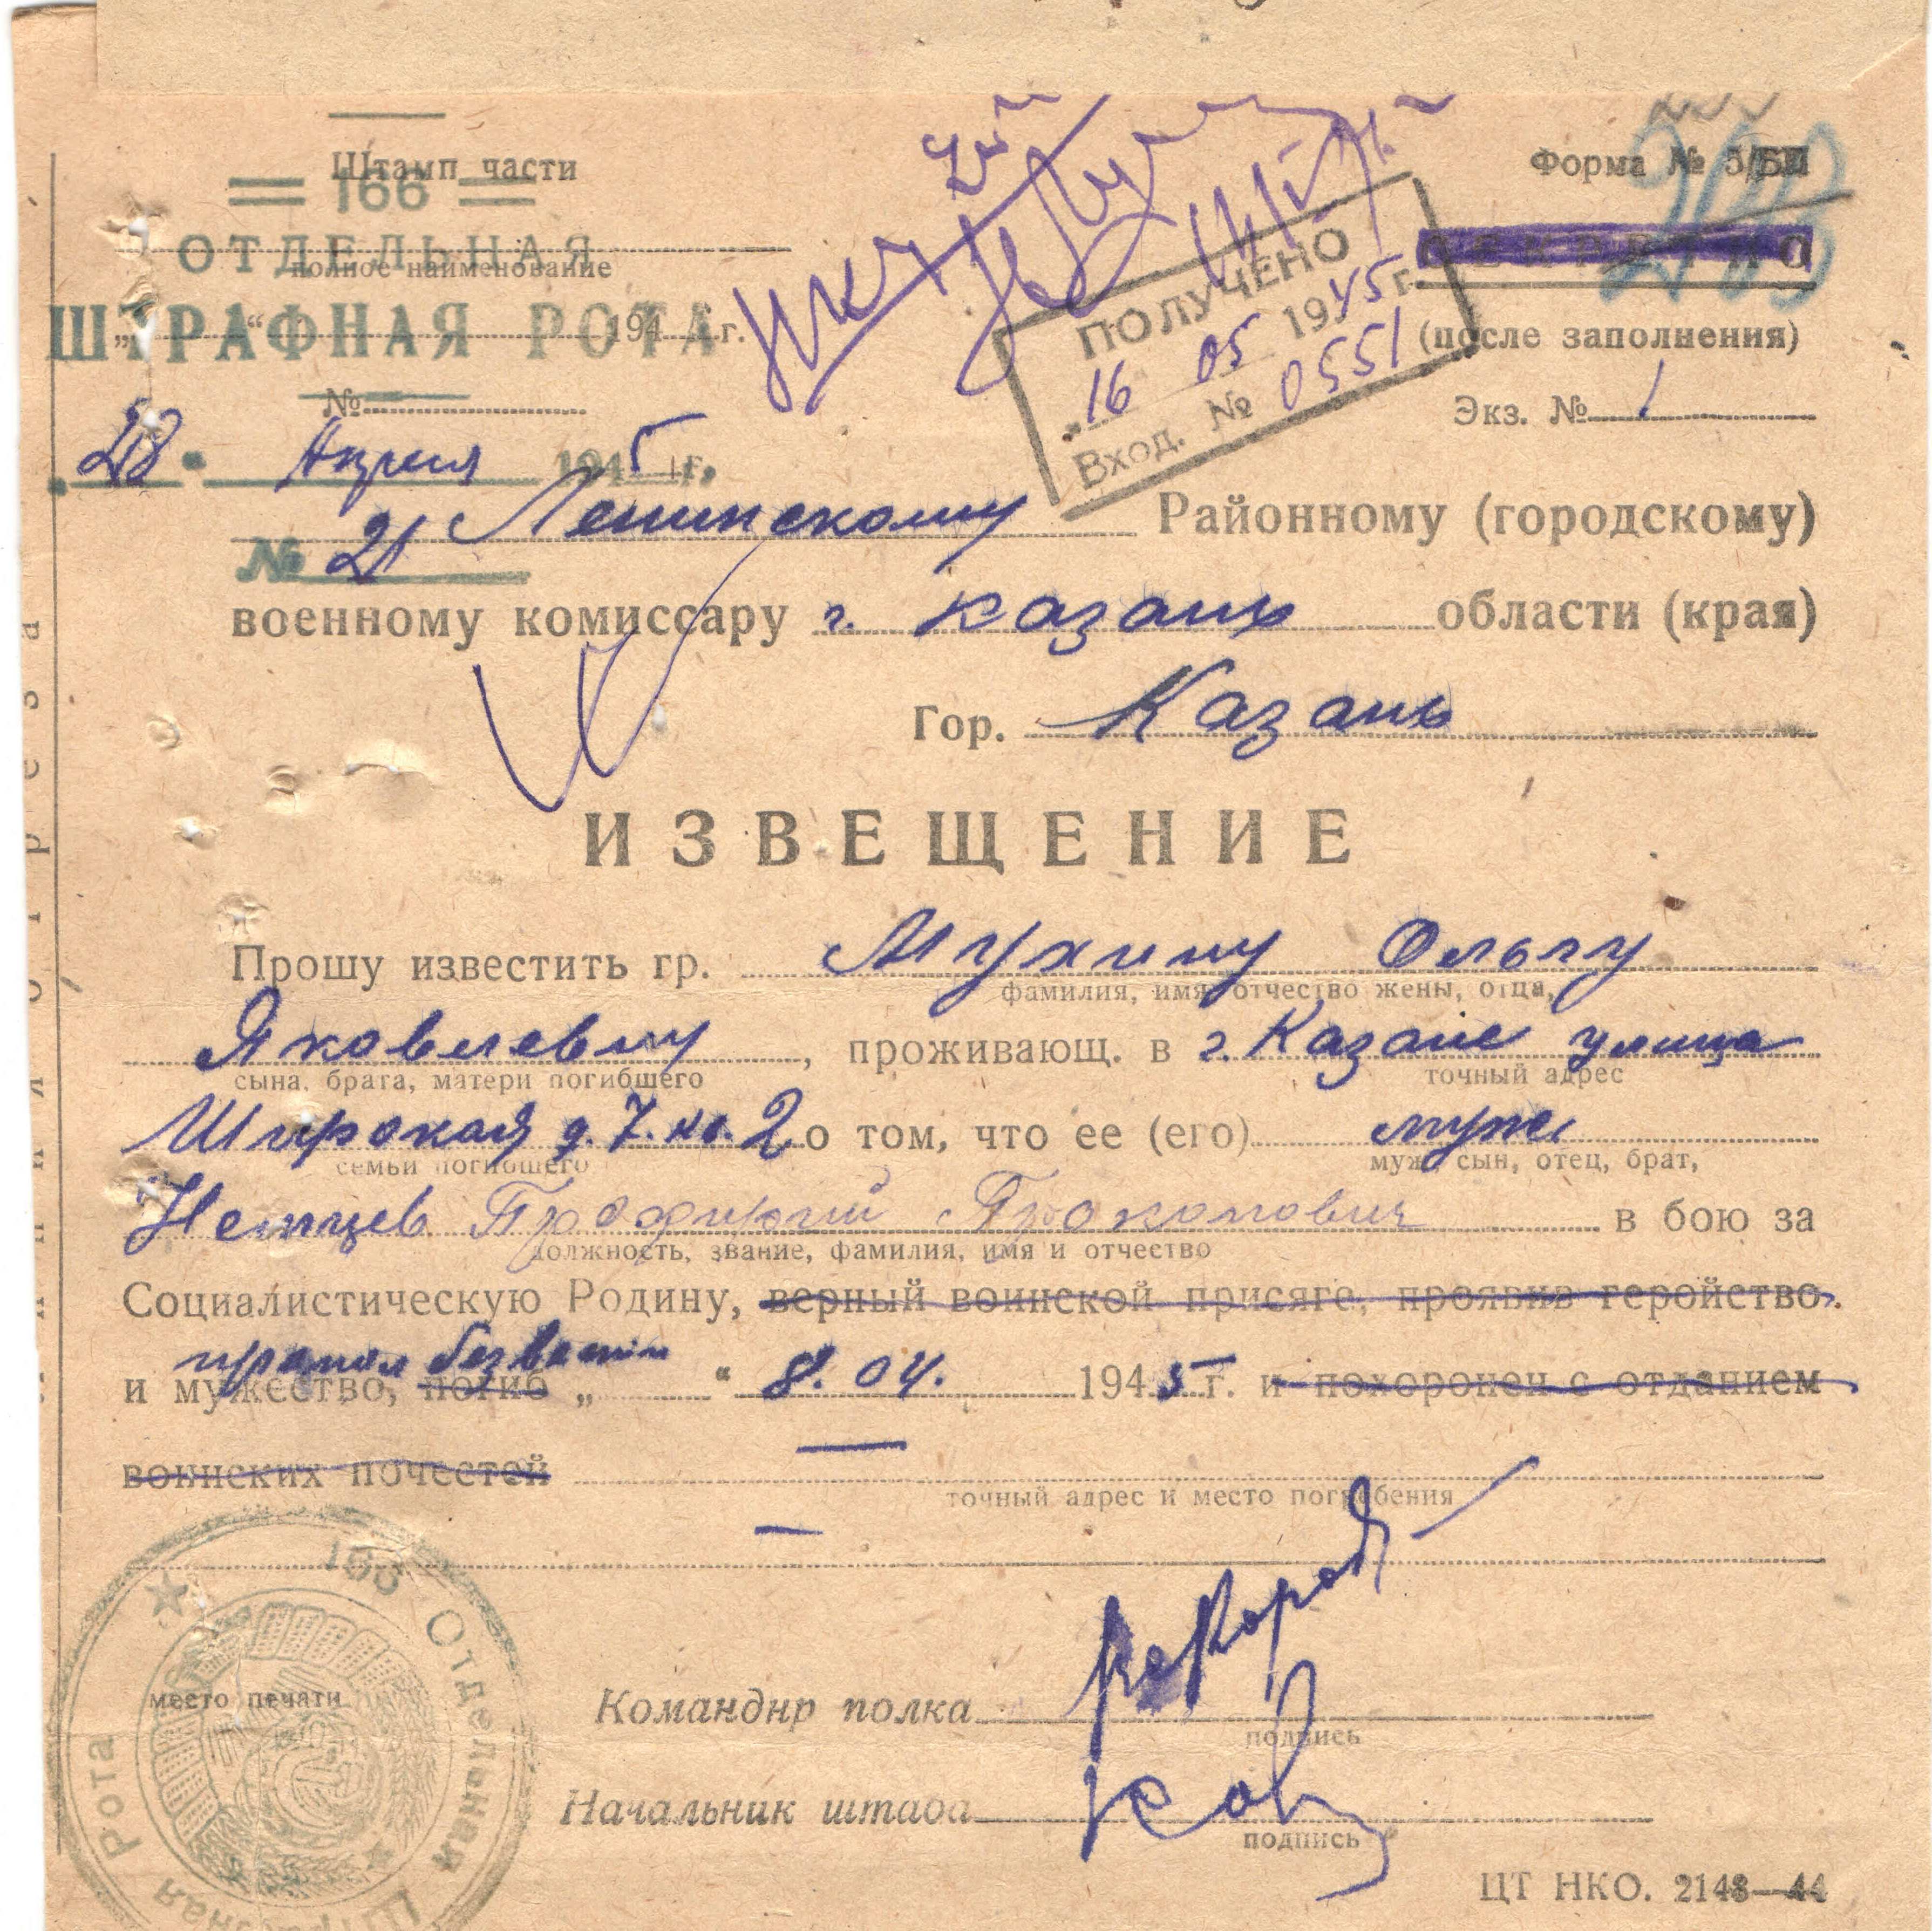 Штамп части
166
ОТДЕЛЬНАЯ
полное наименование
ШТРАФНАЯ РОТА
„ “ 194 г.
№
28 Апреля 1945 г.
№ 21
ПОЛУЧЕНО
16 05 1945 г.
Вход. № 0551
Форма № 5/БП
СЕКРЕТНО
(после заполнения)
Экз. № 1
Ленинскому Районному (городскому)
военному комиссару г. Казань области (края)
Гор. Казань
ИЗВЕЩЕНИЕ
Прошу известить гр. Мухину Ольгу
фамилия, имя, отчество жены, отца,
Яковлевну, проживающ. в г. Казане улица
сына, брата, матери погибшего
точный адрес
Широкая д. 7. кв. 2 о том, что ее (его) муж
семьи погибшего
муж, сын, отец, брат,
Немцев Профирий Прокопович в бою за
должность, звание, фамилия, имя и отчество
Социалистическую Родину, верный воинской присяге, проявив геройство.
пропал без вести
и мужество, погиб „ “ 8. 04. 1945 г. и похоронен с отданием
воинских почестей
точный адрес и место погребения
место печати
166 Отдельная Штрафная Рота
Командир полка
подпись
Начальник штаба
подпись
ЦТ НКО. 2148—44
линия отреза